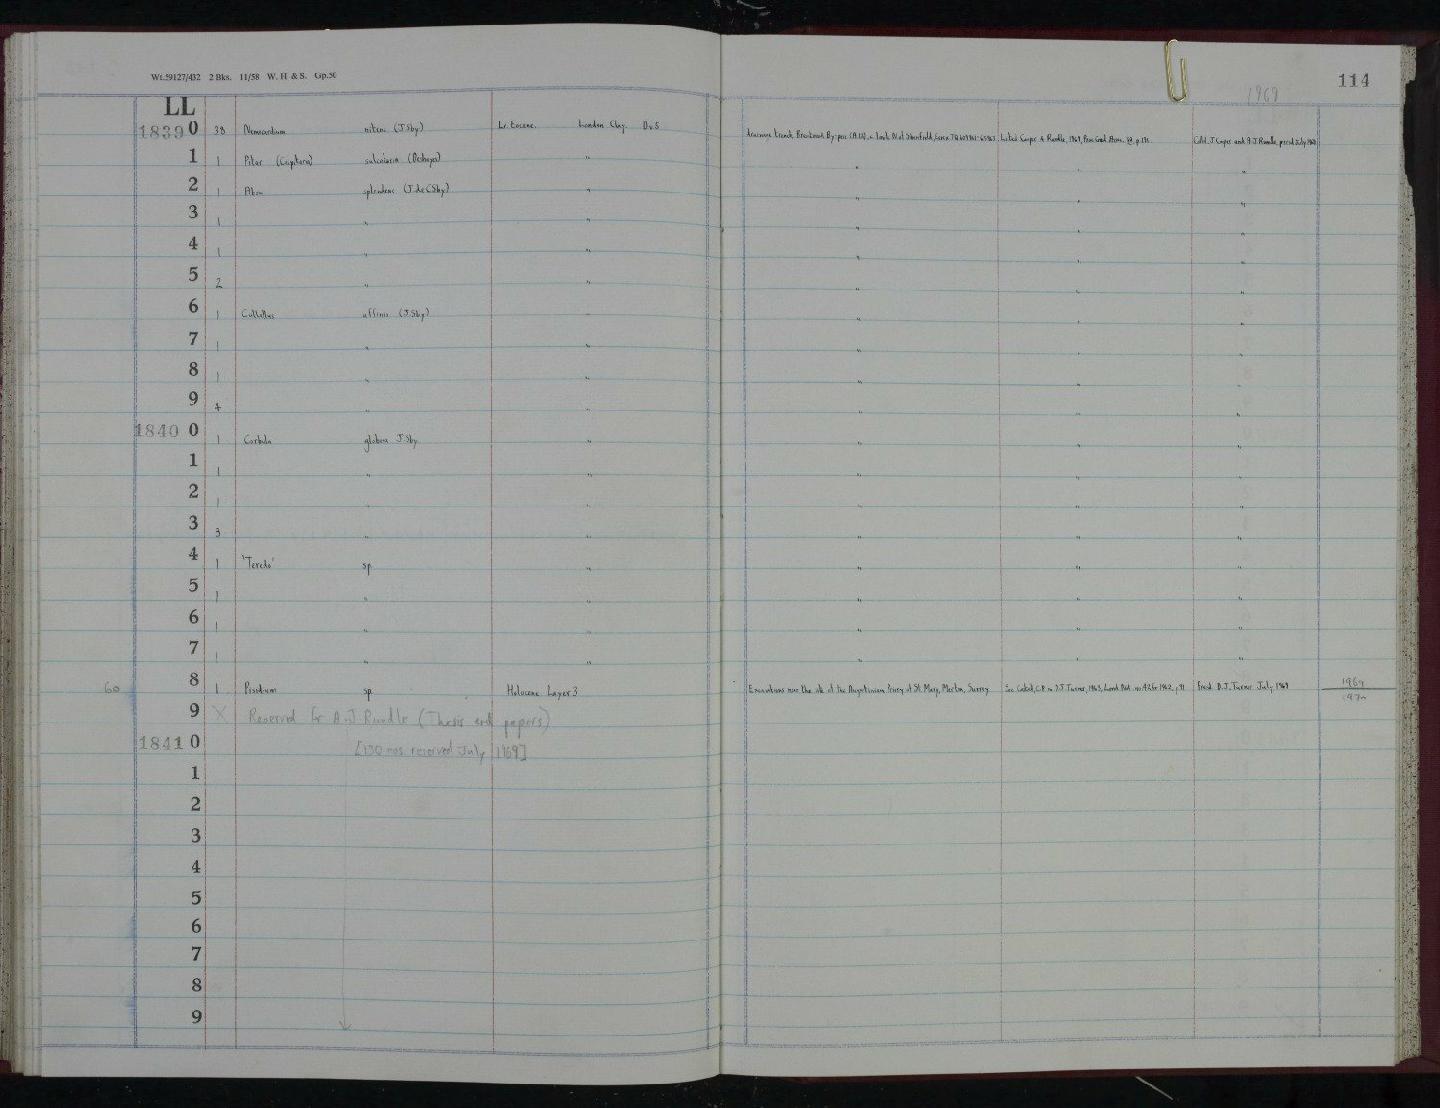 Wt.59127/432 2 Bks. 11/58 W. H & S. Gp.50
114
1969
LL
1839 0 38 Nemocardium nitens (J.Sby) Lr. Eocene. London Clay. Div 5 drainage trench Brentwood By-pass (A.12), Listed Cooper & Rundle, 1969, Proc. Geol. Assoc. Colld. J. Cooper and A.J. Rundle, presd July 1969
1 1 Pitar (Calpitaria) sulcataria (Deshayes) " " " "
2 1 Abra splendens (J.de C Sby) " " " "
3 1 " " " " "
4 1 " " " " "
5 2 " " " " "
6 1 Cultellus affinis (J.Sby) " " " "
7 1 " " " " "
8 1 " " " " "
9 4 " " " " "
1840 0 1 Corbula globosa J.Sby " " " "
1 1 " " " " "
2 1 " " " " "
3 3 " " " " "
4 1 'Teredo' sp " " " "
5 1 " " " " "
6 1 " " " " "
7 1 " " " " "
60 8 1 Pisidium sp Holocene Layer 3 Excavations near the site of the Augustinian Priory of St. Mary, Merton, Surrey See D.J. Turner, 1963, Presd D.J. Turner July 1969 1969
9 X Reserved for A.J Rundle (Thesis and papers)
1841 0 [130 nos reserved July 1969]
1
2
3
4
5
6
7
8
9